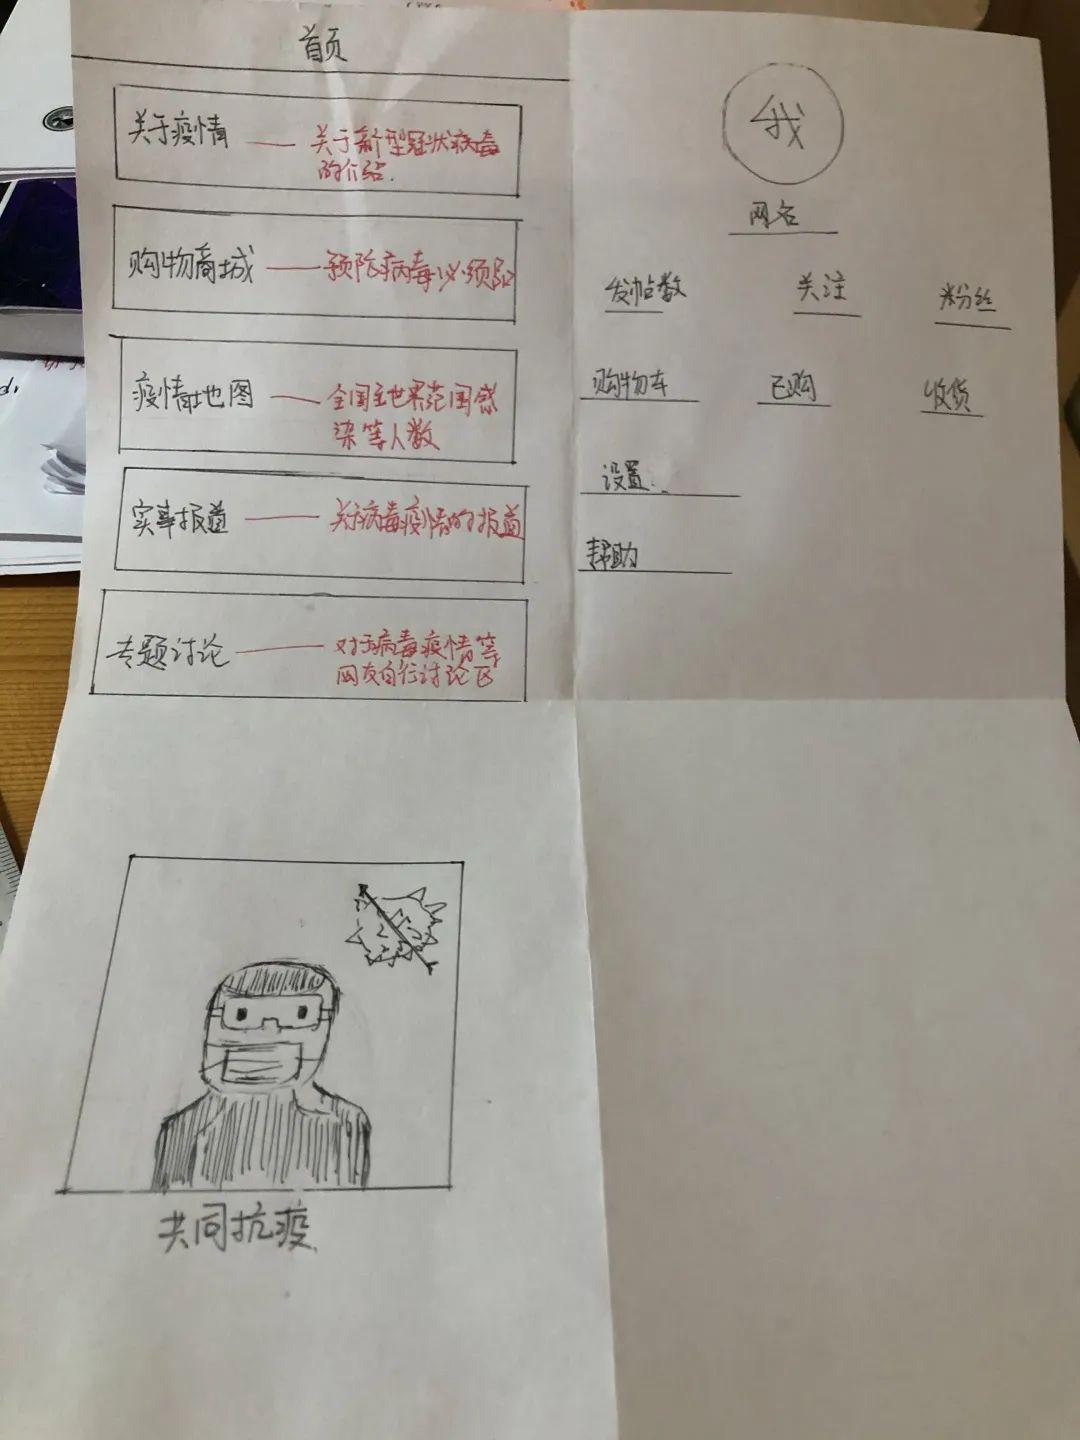 首页
关于疫情 —— 关于新型冠状病毒
的介绍.
购物商城 —— 预防病毒必须品
疫情地图 —— 全国至世界范围感
染等人数
实事报道 —— 关于病毒疫情的报道
专题讨论 —— 对于病毒疫情等
网友自行讨论区
我
网名
发帖数 关注 粉丝
购物车 已购 收货
设置
帮助
共同抗疫